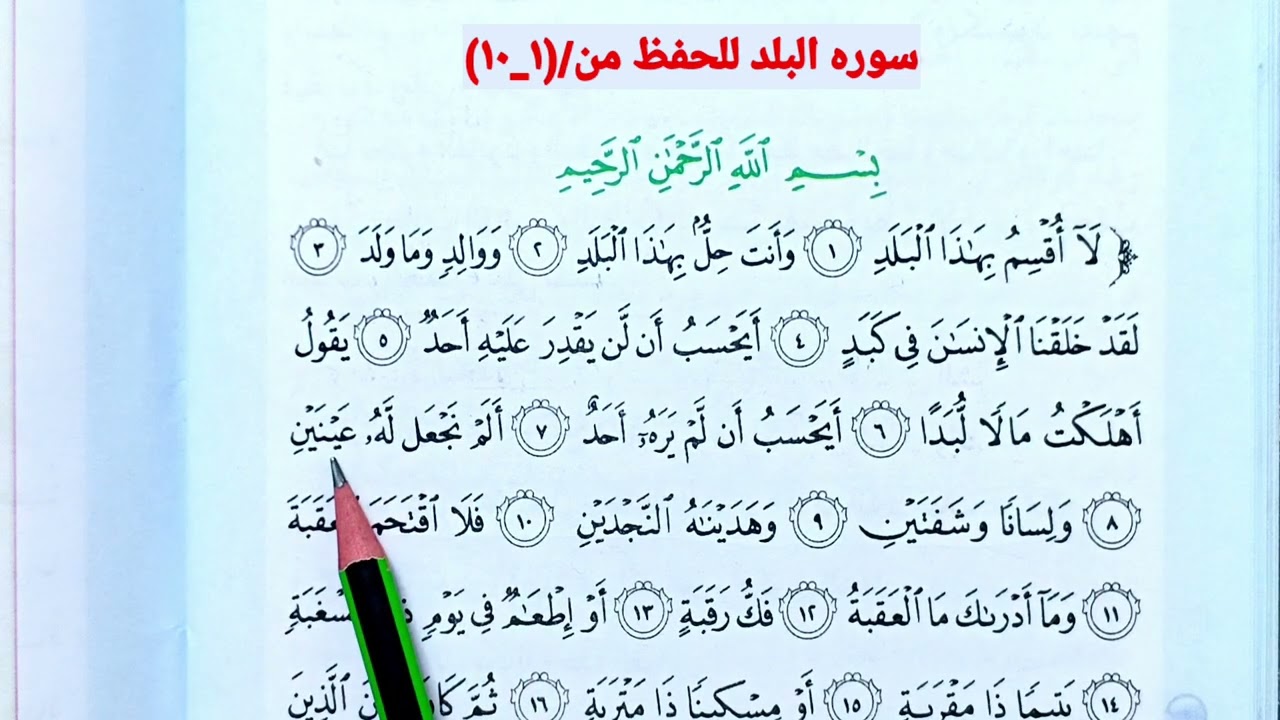 سوره البلد للحفظ من/(١_١٠)
بِسْمِ ٱللَّهِ ٱلرَّحْمَٰنِ ٱلرَّحِيمِ
لَآ أُقْسِمُ بِهَٰذَا ٱلْبَلَدِ ١ وَأَنتَ حِلٌّۢ بِهَٰذَا ٱلْبَلَدِ ٢ وَوَالِدٍ وَمَا وَلَدَ ٣
لَقَدْ خَلَقْنَا ٱلْإِنسَٰنَ فِى كَبَدٍ ٤ أَيَحْسَبُ أَن لَّن يَقْدِرَ عَلَيْهِ أَحَدٌ ٥ يَقُولُ
أَهْلَكْتُ مَالًا لُّبَدًا ٦ أَيَحْسَبُ أَن لَّمْ يَرَهُۥٓ أَحَدٌ ٧ أَلَمْ نَجْعَل لَّهُۥ عَيْنَيْنِ
٨ وَلِسَانًا وَشَفَتَيْنِ ٩ وَهَدَيْنَٰهُ ٱلنَّجْدَيْنِ ١٠ فَلَا ٱقْتَحَمَ
١١ وَمَآ أَدْرَىٰكَ مَا ٱلْعَقَبَةُ ١٢ فَكُّ رَقَبَةٍ ١٣ أَوْ إِطْعَٰمٌ فِى يَوْمٍ
١٤ يَتِيمًا ذَا مَقْرَبَةٍ ١٥ أَوْ مِسْكِينًا ذَا مَتْرَبَةٍ ١٦ ثُمَّ ٱلَّذِينَ